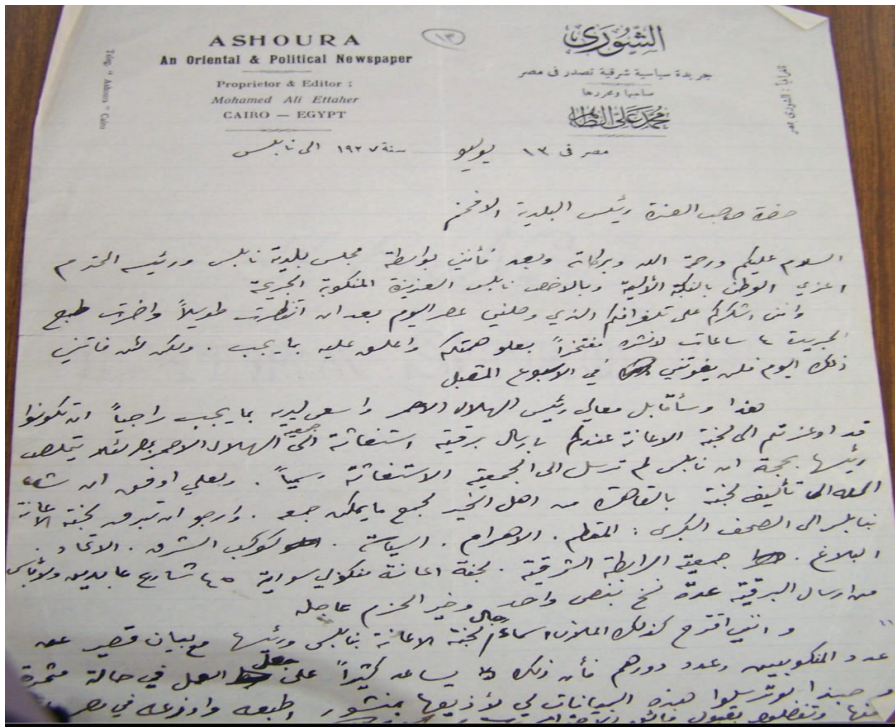 ASHOURA
An Oriental & Political Newspaper
Proprietor & Editor :
Mohamed Ali Ettaher
CAIRO — EGYPT
Téleg. « Ashoura » Cairo
١٣
الشورى
جريدة سياسية شرقية تصدر فى مصر
صاحبها ومحررها
محمد على الطاهر
مصر فى ١٣ يوليو سنة ١٩٢٧ الى نابلس
حضرة صاحب العزة رئيس البلدية الافخم
السلام عليكم ورحمة الله وبركاته وبعد فأنني بواسطة مجلس بلدية نابلس ورئيسه المحترم
اعزي الوطن بالنكبة الأليمة وبالاخص نابلس العزيزة المنكوبة الجريحة
وانني اشكركم على تلغرافكم الذي وصلني عصر اليوم بعد ان انتظرت طويلاً واخرت طبع
الجريدة ٤ ساعات لانشره مفتخراً بعلو همتكم واعلق عليه بما يجب . ولكن لئن فاتني
ذلك اليوم فلن يفوتني في الاسبوع المقبل
هذا وسأقابل معالي رئيس الهلال الاحمر واسعى لديه بما يجب راجياً ان تكونوا
قد اوعزتم الى لجنة الاعانة عندكم بارسال برقية استغاثة الى جمعية الهلال الاحمر بمصر لئلا يتملص
رئيسها بحجة ان نابلس لم ترسل الى الجمعية الاستغاثة رسمياً . ولعلي اوفق ان شاء
الله الى تأليف لجنة بالقاهرة من اهل الخير لجمع ما يمكن جمعه . وارجو ان تبرق لجنة الاعانة
بنابلس الى الصحف الكبرى : المقطم . الاهرام . السياسة . كوكب الشرق . الاتحاد
البلاغ . جمعية الرابطة الشرقية . لجنة اعانة منكوبي سورية ٤٥ شارع عابدين ولا بأس
من ارسال البرقية عدة نسخ بنص واحد وخير الحزم عاجله
وانني اقترح كذلك اسماء رجال لجنة الاعانة بنابلس ورئيسها مع بيان قصير عن
عدد المنكوبين وعدد دورهم فأن ذلك يساعد كثيراً على جعل العمل في حالة مثمرة
حبذا لو ترسلوا هذه البيانات لي لأذيعها بمنشور اطبعه واوزعه في مصر